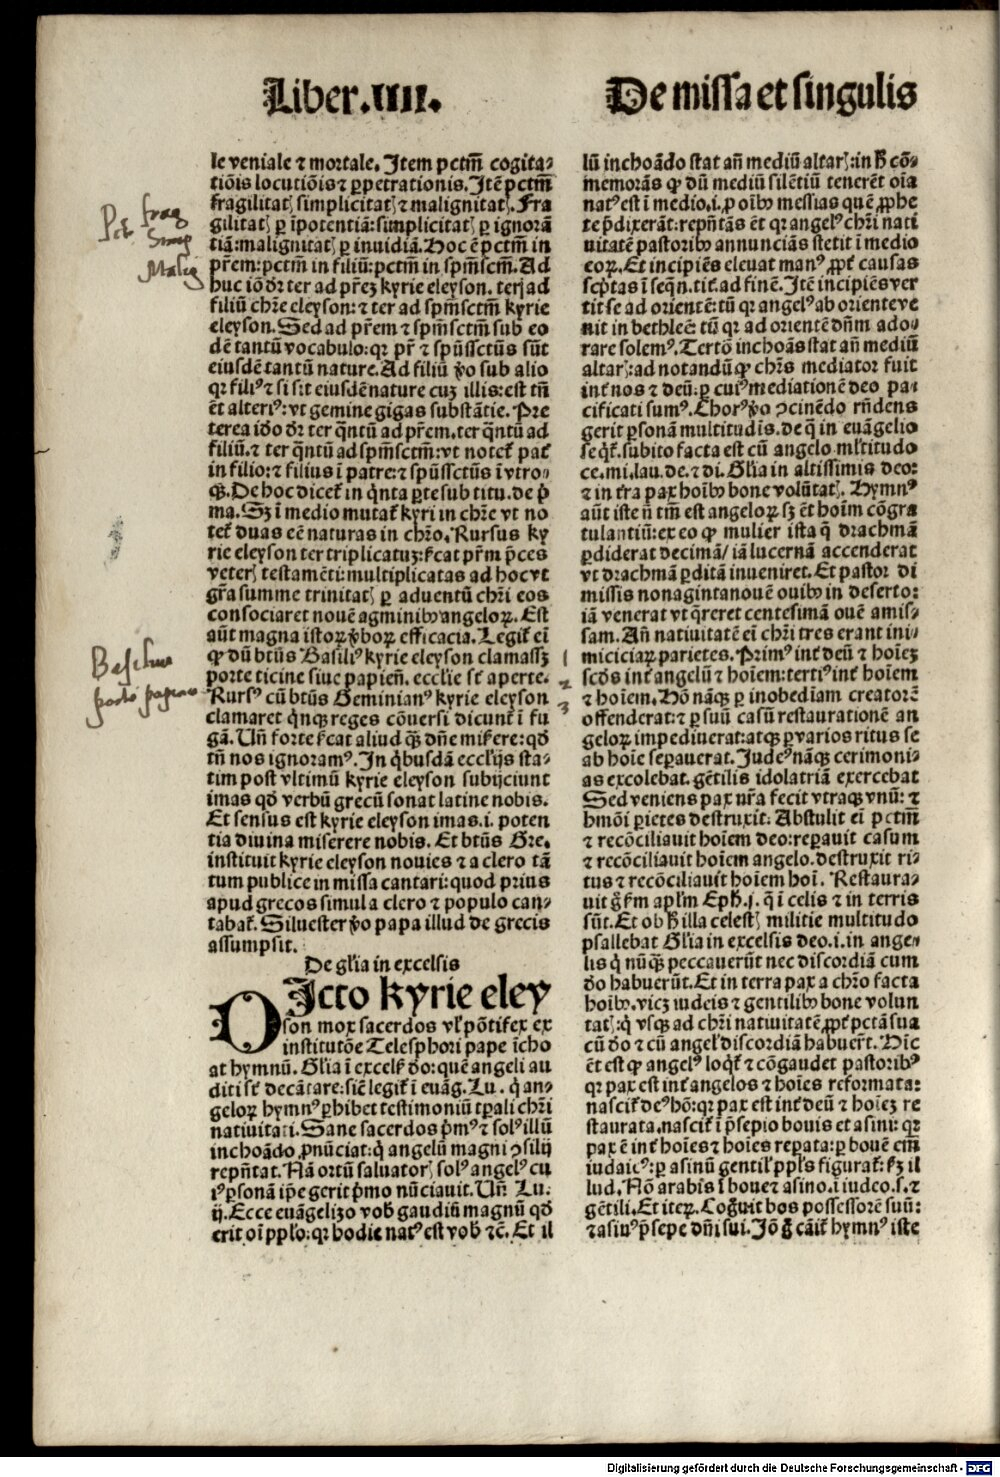 Liber.IIII.
De missa et singulis
le veniale ⁊ mortale. Item pctm̄ cogita-
tiōis locutiōis ⁊ ꝑpetrationis. Itē pctm̄
fragilitatꝭ simplicitatꝭ ⁊ malignitatꝭ. Fra
gilitatꝭ ꝑ īpotentiā: simplicitatꝭ ꝑ ignorā
tiā: malignitatꝭ ꝑ inuidiā. Hoc ē pctm̄ in
pr̄em: pctm̄ in filiū: pctm̄ in spm̄sctm̄. Ad
huc iō dr̄ ter ad pr̄eꝫ kyrie eleyson. ter ad
filiū chr̄e eleyson: ⁊ ter ad spm̄sctm̄ kyrie
eleyson. Sed ad pr̄em ⁊ spm̄sctm̄ sub eo
dē tantū vocabulo: qꝛ pr̄ ⁊ spūssctūs sūt
eiusdē tantū nature. Ad filiū ꝟo sub alio
qꝛ filiꝰ ⁊ si sit eiusdē nature cuꝫ illis: est tn̄
ēt alteriꝰ: vt gemine gigas substātie. Pre
terea iō dr̄ ter qͥntū ad pr̄em. ter qͥntū ad
filiū. ⁊ ter qͥntū ad spm̄sctm̄: vt notet᷑ pat᷑
in filio: ⁊ filius ī patre: ⁊ spūssctūs ī vtro-
qꝫ. De hoc dicet᷑ in qͥnta ꝑte sub titu. de pͥ
ma. Sꝫ ī medio mutat᷑ kyri in chr̄e vt no
tet᷑ duas eē naturas in chr̄o. Rursus ky
rie eleyson ter triplicatuꝫ: sͥcat pr̄m p̄ces
veterꝭ testamēti: multiplicatas ad hoc vt
gr̄a summe trinitatꝭ ꝑ aduentū chr̄i eos
consociaret nouē agminibꝰ angeloꝝ. Est
aūt magna istoꝝ ꝟboꝝ efficacia. Legit᷑ eī
ꝙ dū btūs Basiliꝰ kyrie eleyson clamassꝫ
porte ticine siue papien̄. ecclīe sē aperte.
Rursꝰ cū btūs Geminianꝰ kyrie eleyson
clamaret qͥnqꝫ reges cōuersi dicunt᷑ ī fu
gā. Un̄ forte sͥcat aliud qꝫ dn̄e misere: qd̄
tn̄ nos ignoramꝰ. In qͥbusdā eccl̄ijs sta-
tim post vltimū kyrie eleyson subijciunt
imas qd̄ verbū grecū sonat latine nobis.
Et sensus est kyrie eleyson imas. i. poten
tia diuina miserere nobis. Et btūs Gre.
instituit kyrie eleyson nouies ⁊ a clero tā
tum publice in missa cantari: quod prius
apud grecos simul a clero ⁊ populo can-
tabat᷑. Siluester ꝟo papa illud de grecis
assumpsit.
De gl̄ia in excelsis
DIcto kyrie eley
son mox sacerdos vl̓ pōtifex ex
institutōe Telesphori pape īcho
at hymnū. Gl̄ia ī excelsꝭ dō: quē angeli au
diti sē decātare: sic̄ legit᷑ ī euāg. Lu. qͥ an-
geloꝝ hymnꝰ ꝑhibet testimoniū tp̄ali chr̄i
natiuitati. Sane sacerdos pͥmꝰ ⁊ solꝰ illū
inchoādo ꝓnūciat: qͥ angelū magni ꝯsilij
repn̄tat. Nā ortū saluatorꝭ solꝰ angelꝰ cu
iꝰ ꝑsonā ip̄e gerit pͥmo nūciauit. Un̄ Lu.
ij. Ecce euāgelizo vob̄ gaudiū magnū qd̄
erit oī pplo: qꝛ hodie natꝰ est vob̄ ⁊c̄. Et il
lū inchoādo stat an̄ mediū altarꝭ: in ħ cō-
memorās ꝙ dū mediū silētiū tenerēt oīa
natꝰ est ī medio. i. ꝓ oībꝰ messias quē ꝓphe
te p̄dixerāt: repn̄tās ēt qꝛ angelꝰ chr̄i nati
uitatē pastoribꝰ annunciās stetit ī medio
eoꝝ. Et incipiēs eleuat manꝰ ꝓpt᷑ causas
scͥptas ī seqn̄. tit. ad finē. Itē incipiēs ver
tit se ad orientē: tū qꝛ angelꝰ ab oriente ve
nit in bethleē: tū qꝛ ad orientē dn̄m ado-
rare solemꝰ. Tertō inchoās stat an̄ mediū
altarꝭ: ad notandū ꝙ chr̄s mediator fuit
int᷑ nos ⁊ deū: ꝑ cuiꝰ mediationē deo pa-
cificati sumꝰ. Chorꝰ ꝟo ꝯcinēdo rn̄dens
gerit ꝑsonā multitudīs. de q̄ in euāgelio
seqͥt᷑. subito facta est cū angelo ml̓titudo
ce. mi. lau. de. ⁊ di. Gl̄ia in altissimis deo:
⁊ in tr̄a pax hoībꝰ bone volūtatꝭ. Hymnꝰ
aūt iste n̄ tm̄ est angeloꝝ sꝫ ēt hoīm cōgra
tulantiū: ex eo ꝙ mulier ista q̄ drachmā
ꝑdiderat decimā/ iā lucernā accenderat
vt drachmā ꝑditā inueniret. Et pastor di
missis nonagintanouē ouibꝰ in deserto:
iā venerat vt q̄reret centesimā ouē amis-
sam. An̄ natiuitatē eī chr̄i tres erant ini-
miciciaꝝ parietes. Primꝰ int᷑ deū ⁊ hoīeꝫ
scd̄s int᷑ angelū ⁊ hoīem: tertiꝰ int᷑ hoīem
⁊ hoīem. Hō nāqꝫ ꝑ inobediam creatorē
offenderat: ⁊ ꝑ suū casū restaurationē an
geloꝝ impediuerat: atqꝫ ꝑ varios ritus se
ab hoīe seꝑauerat. Judeꝰ nāqꝫ cerimoni-
as excolebat. gētilis idolatriā exercebat
Sed veniens pax nr̄a fecit vtraqꝫ vnū: ⁊
hmōi ꝑietes destruxit. Abstulit eī pctm̄
⁊ recōciliauit hoīem deo: reꝑauit casum
⁊ recōciliauit hoīem angelo. destruxit ri-
tus ⁊ recōciliauit hoīem hoī. Restaura-
uit ḡ sͥm apl̄m Eph. j. q̄ ī celis ⁊ in terris
sūt. Et ob ħ illa celestꝭ militie multitudo
psallebat Gl̄ia in excelsis deo. i. in ange-
lis qͥ nūqꝫ peccauerūt nec discordiā cum
dō habuerūt. Et in terra pax a chr̄o facta
hoībꝰ. viꝫ iudeis ⁊ gentilibꝰ bone volun
tatꝭ: qͥ vsqꝫ ad chr̄i natiuitatē ꝓpt᷑ pctā sua
cū dō ⁊ cū angelꝭ discordiā habuer̄t. Hic
ēt est ꝙ angelꝰ loqͥt᷑ ⁊ cōgaudet pastoribꝰ
qꝛ pax est int᷑ angelos ⁊ hoīes reformata:
nascit᷑ deꝰ hō: qꝛ pax est int᷑ deū ⁊ hoīeꝫ re
staurata. nascit᷑ ī p̄sepio bouis et asini: qꝛ
pax ē int᷑ hoīes ⁊ hoīes reꝑata: ꝑ bouē em̄
iudaicꝰ: ꝑ asinū gentil̓ ppl̄s figurat᷑: sͥꝫ il
lud. Nō arabis ī boue ⁊ asino. i. iudeo. s. ⁊
gētili. Et iteꝝ. Cog̊uit bos possessorē suū:
⁊ asinꝰ p̄sepe dn̄i sui. Iō ḡ cāit᷑ hymnꝰ iste
frag
Simp
Malig
1
2
3
Digitalisierung gefördert durch die Deutsche Forschungsgemeinschaft - DFG